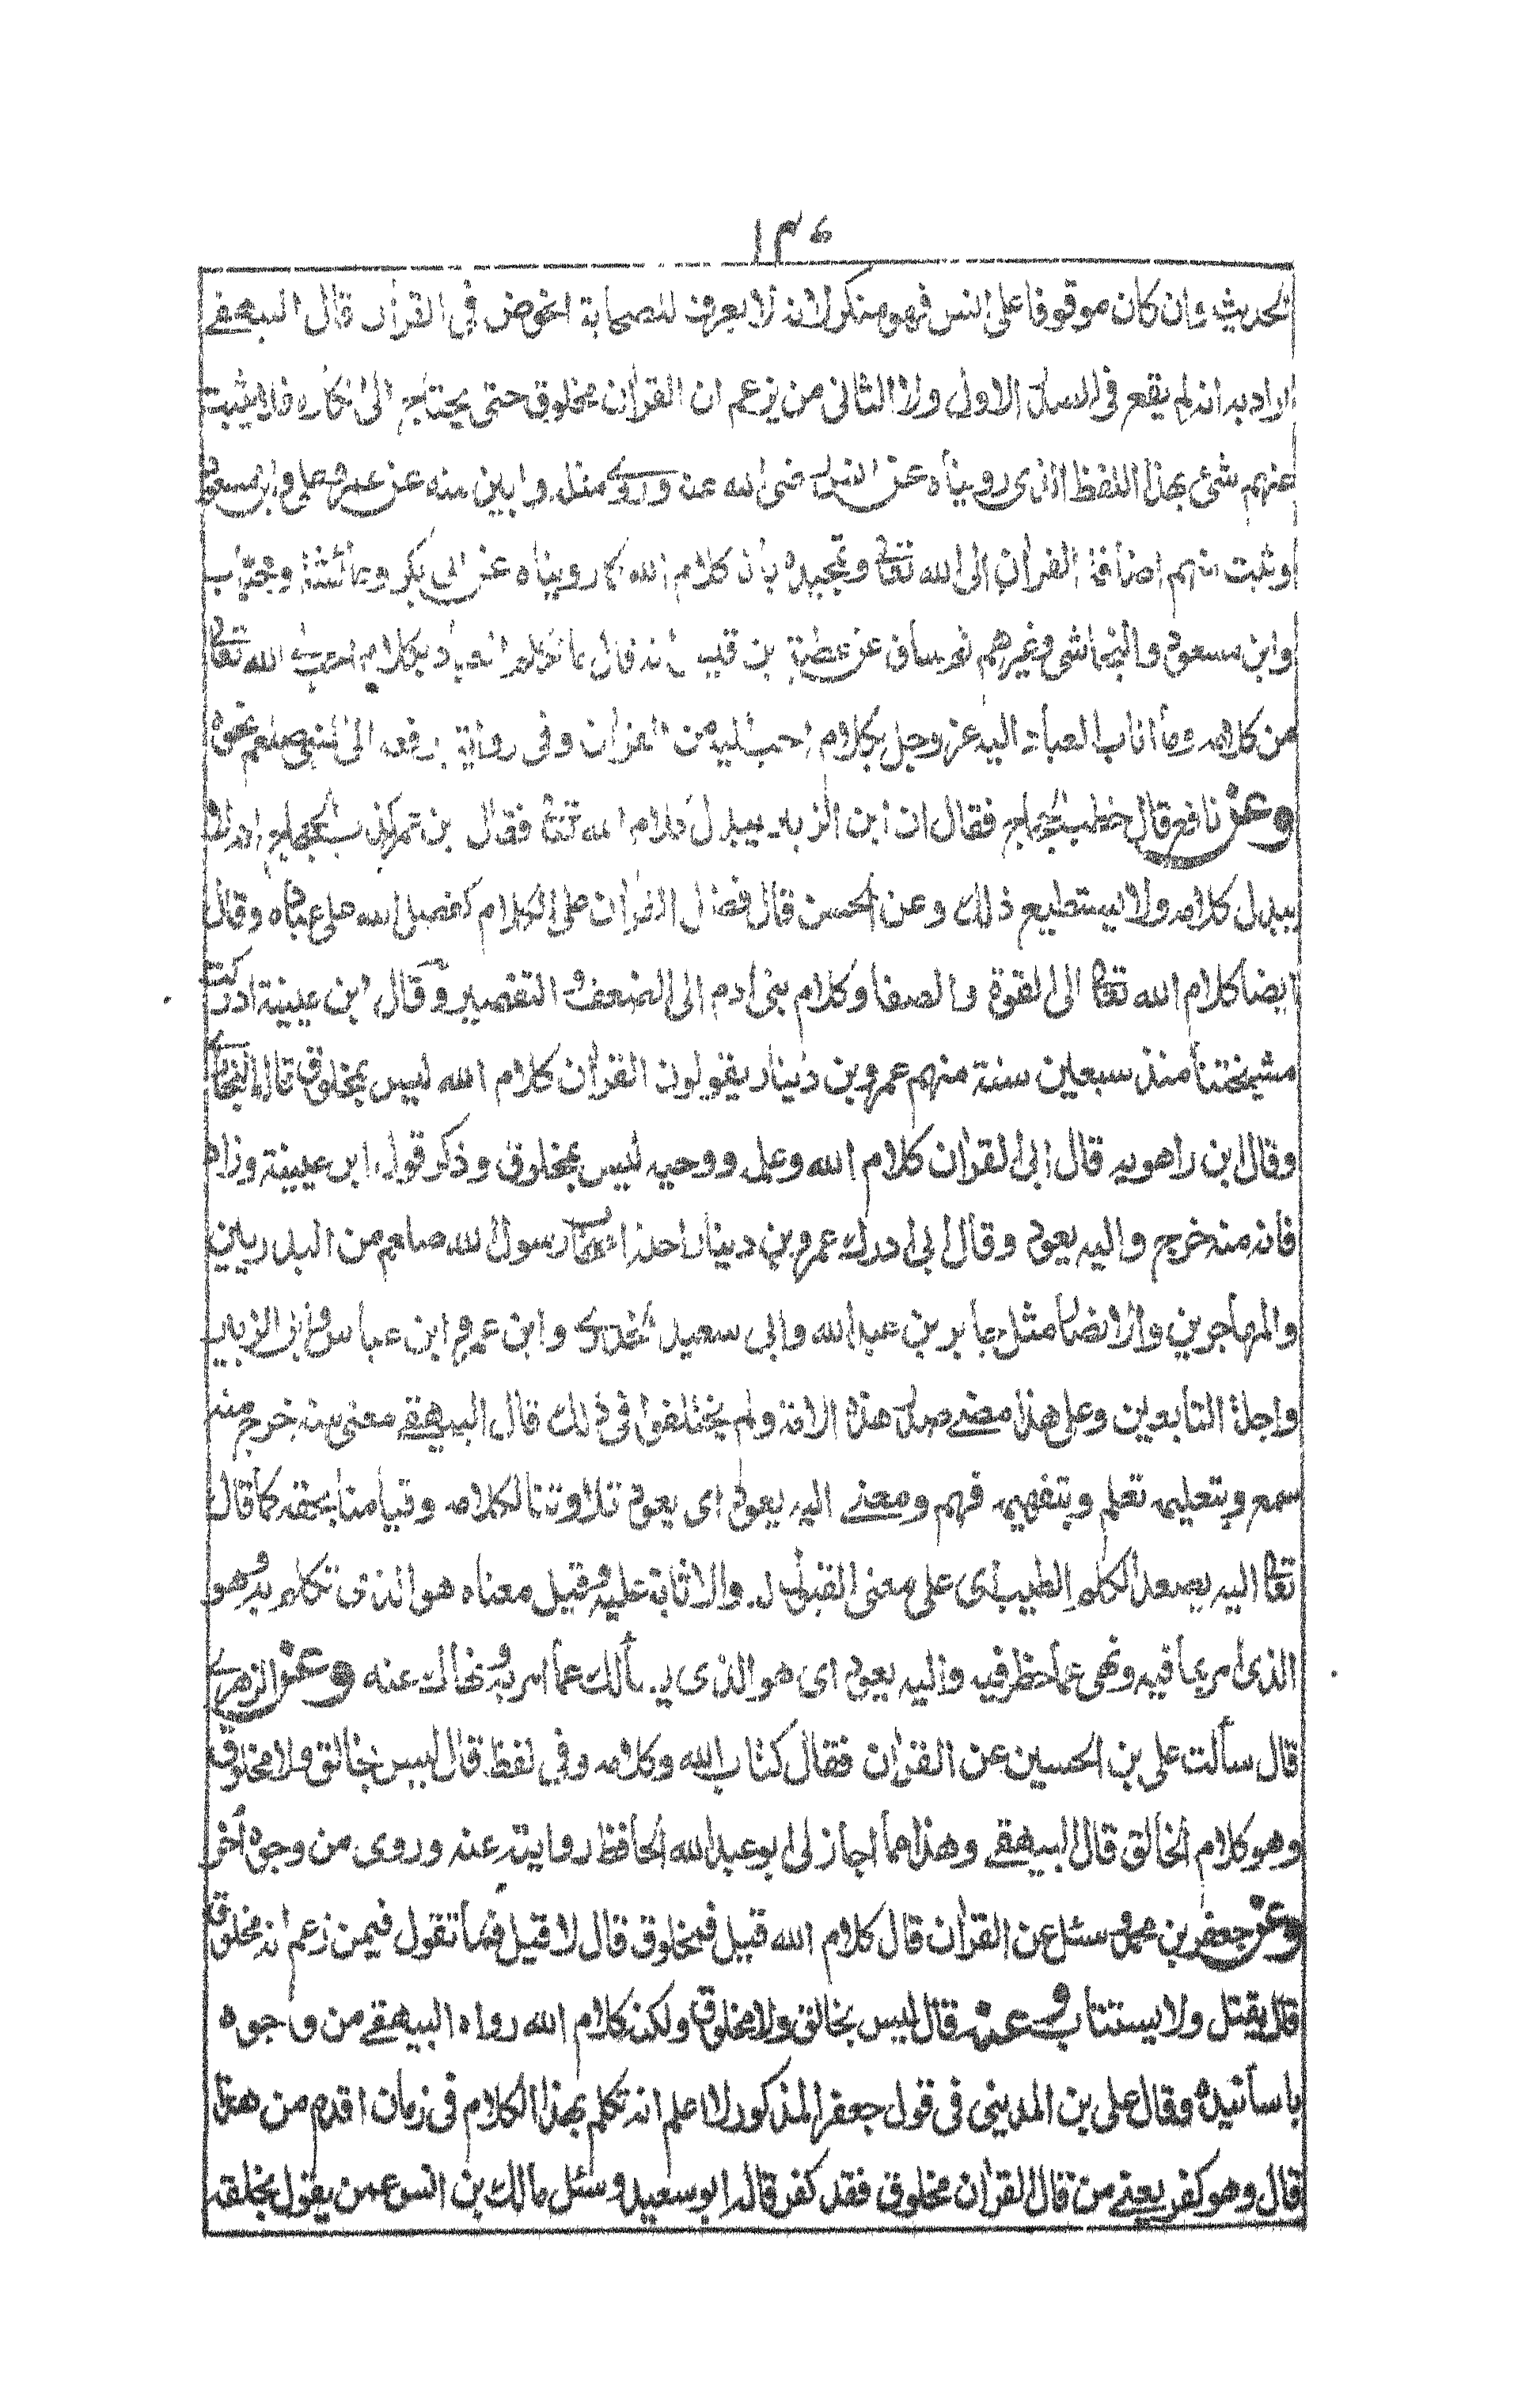 ١٣٤
الحديث وان كان موقوفا على انس فهو منكر لانه لا يعرف للصحابة الخوض في القران قال البيهقي
اراد به انه لم يقع في الاسلام الاول ولا الثاني من يزعم ان القران مخلوق حتى يحتاج الى انكاره فلا يثبت
عنهم شئ بهذا اللفظ الذي رويناه عن انس رضي الله عنه وروى مثله وابين منه عن عمر وعلي وابن مسعود
وثبت عنهم اضافة القران الى الله تعالى وتمجيده بانه كلام الله كما رويناه عن ابي بكر وعائشة وخباب
وابن مسعود والنجاشي وغيرهم ثم ساق عن عطية بن قيس انه قال ما تكلم العباد بكلام احب الى الله تعالى
من كلامه وما اناب العباد اليه عز وجل بكلام احب اليه من القران وفي رواية يرفعه الى النبي صلعم نحوه
وعن نافع قال خطب الحجاج فقال ان ابن الزبير يبدل كلام الله تعالى فقال ابن عمر كذب الحجاج ابن الزبير لا
يبدل كلامه ولا يستطيع ذلك وعن الحسن قال فضل القران على الكلام كفضل الله على عباده وقال
ايضا كلام الله تعالى الى القوة والصفا وكلام بني ادم الى الضعف والتقصير وقال ابن عيينة ادركت
مشيختنا منذ سبعين سنة منهم عمرو بن دينار يقولون القران كلام الله ليس بمخلوق قاله البخاري
وقال ابن راهويه قال ابي القران كلام الله وعلمه ووحيه ليس بمخلوق وذكر قول ابن عيينة وزاد
فانه منه خرج واليه يعود وقال ابي ادرك عمرو بن دينار اجلة اصحاب رسول الله صلعم من البدريين
والمهاجرين والانصار مثل جابر بن عبد الله وابي سعيد الخدري وابن عمر وابن عباس وابن الزبير
واجلة التابعين وعلى هذا مضى صدر هذه الامة ولم يختلفوا في ذلك قال البيهقي معنى منه خرج منه
سمع وبتعليمه تعلم وبتفهيمه فهم ومعنى اليه يعود اي يعود تلاوتنا لكلامه وقيامنا بحقه كما قال
تعالى اليه يصعد الكلم الطيب اي على معنى القبول والاثابة عليه وقيل معناه هو الذي تكلم به وهو
الذي امر بما فيه ونهى عما حظر فيه واليه يعود اي هو الذي يسألك عما امر به ونهاك عنه وعن الزهري
قال سألت علي بن الحسين عن القران فقال كتاب الله وكلامه وفي لفظ قال ليس بخالق ولا مخلوق
وهو كلام الخالق قال البيهقي وهذا مما اجاز لي ابو عبد الله الحافظ روايته عنه وروى من وجه اخر
وعن جعفر بن محمد سئل عن القران قال كلام الله قيل فمخلوق قال لا قيل فما تقول فيمن زعم انه مخلوق
قال يقتل ولا يستتاب وعنه قال ليس بخالق ولا مخلوق ولكنه كلام الله رواه البيهقي من وجوه
باسانيده وقال علي بن المديني في قول جعفر المذكور لا اعلم انه تكلم بهذا الكلام في زمان اقدم من هذا
قال وهو كفر يعني من قال القران مخلوق فقد كفر قاله ابو سعيد وسئل مالك بن انس عمن يقول بخلقه